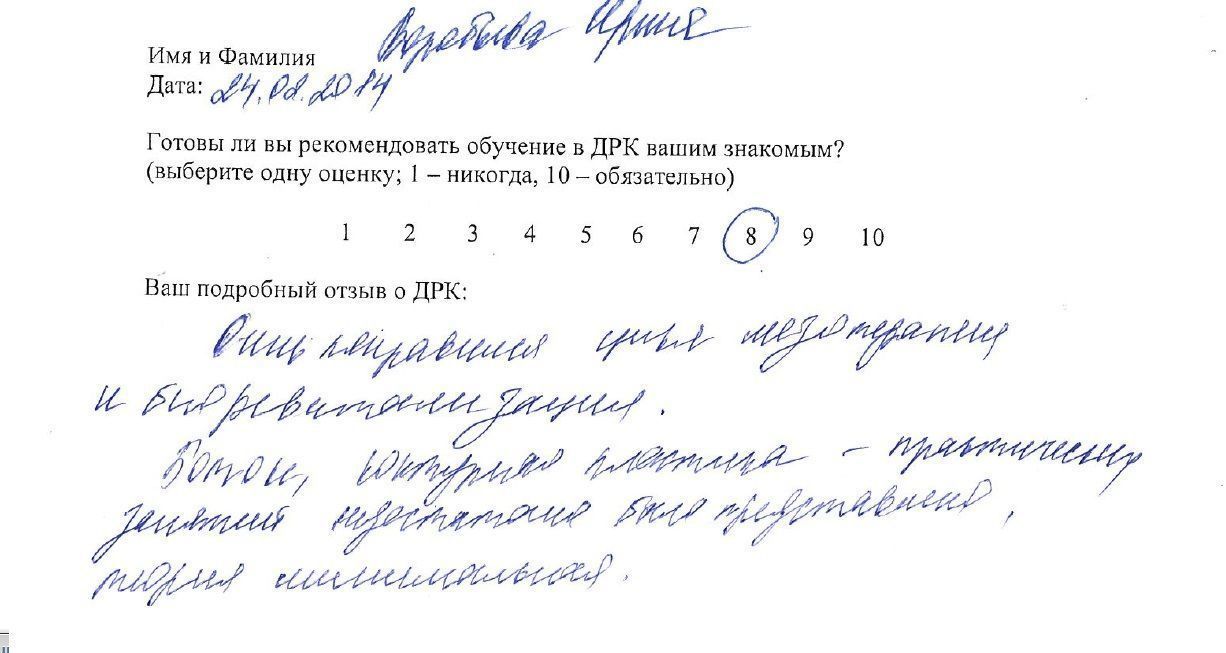 Воробьева Ирина
Имя и Фамилия
Дата: 24.02.2014
Готовы ли вы рекомендовать обучение в ДРК вашим знакомым?
(выберите одну оценку; 1 – никогда, 10 – обязательно)
1 2 3 4 5 6 7 8 9 10
Ваш подробный отзыв о ДРК:
понравился цикл мезотерапия
и биоревитализация.
Ботокс, контурная пластика – практических
занятий недостаточно было представлено,
теория минимальная.